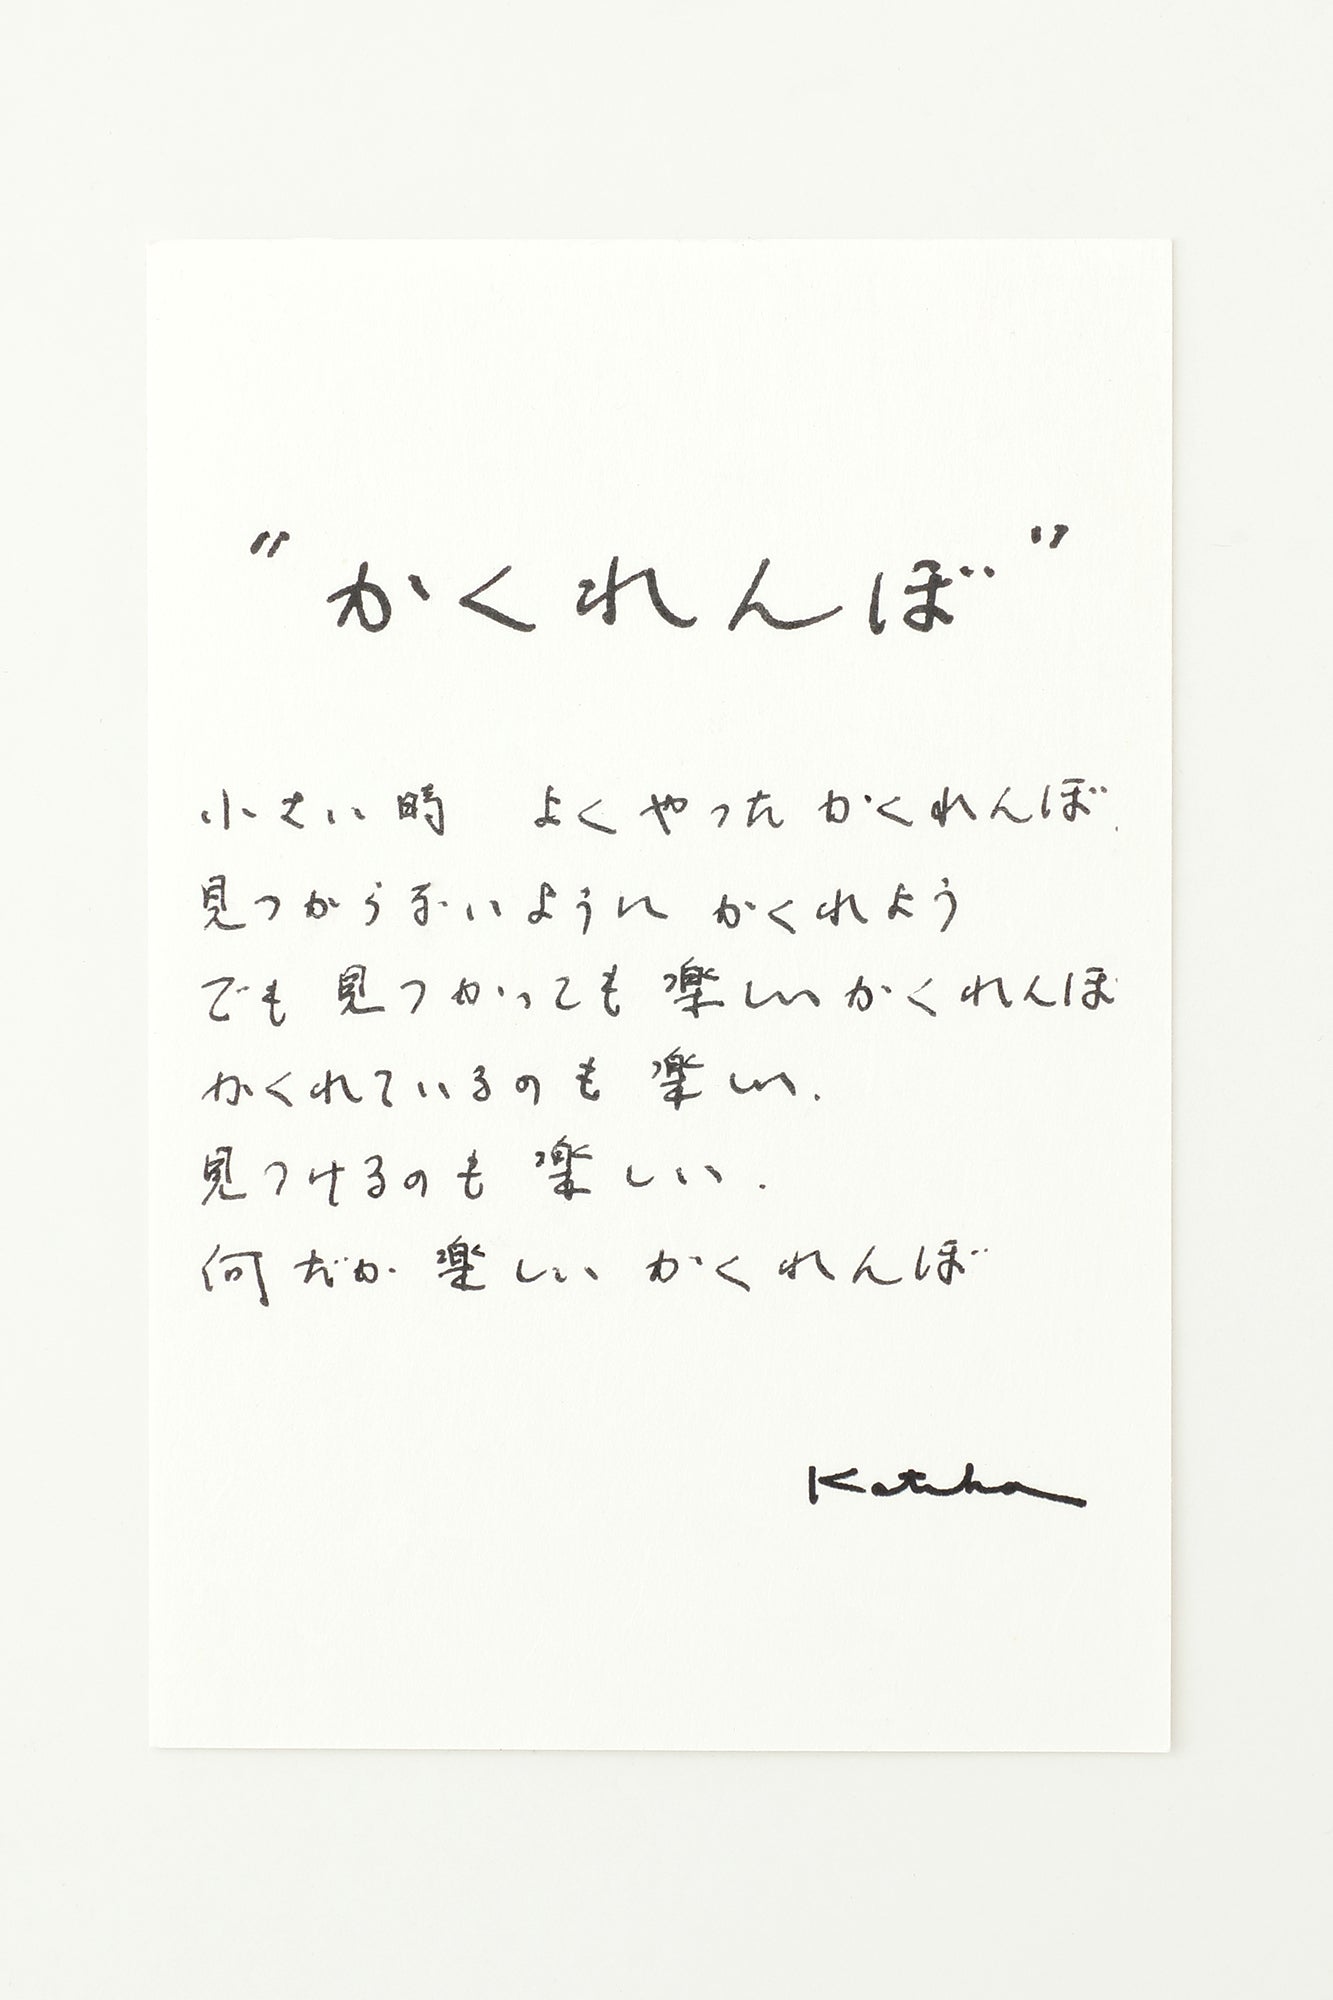 "かくれんぼ"
小さい時 よくやった かくれんぼ.
見つからないように かくれよう
でも 見つかっても 楽しいかくれんぼ
かくれているのも 楽しい.
見つけるのも 楽しい.
何だか 楽しい かくれんぼ